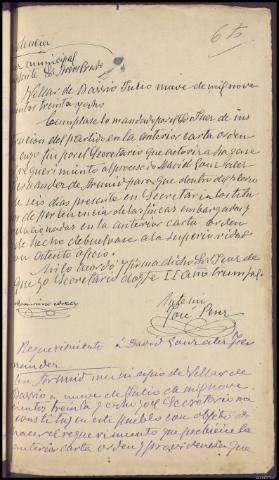 6 b
municipal
Villar de Barrio Julio nueve de mil nove
cientos treinta y ocho
Cumplase lo mandado por el Sr Juez de ins
trucion del partido en la anterior carta orden
por el Secretario que autoriza hagase
requerimiento al procesado David Gonzalez
Fernandez de Arnuid para que dentro del plazo
de seis dias presente en Secretaria los titu
los de pertenencia de las fincas embargadas y
relacionadas en la anterior carta orden
de hecho debuelvase a la superioridad
con atento oficio.
Asi lo acordó y firma dicho Sr Juez de
que yo Secretario doy fe II año triunfal.
Antemi
José Perez
Requerimiento á David Gonzalez Fer
nandez
En Arnuid municipio de Villar de
Barrio a nueve de Julio de mil nove
cientos treinta y ocho yo el Secretario me
constitui en este pueblo con objeto de
hacer el requerimiento que previene la
anterior carta orden y providencia que